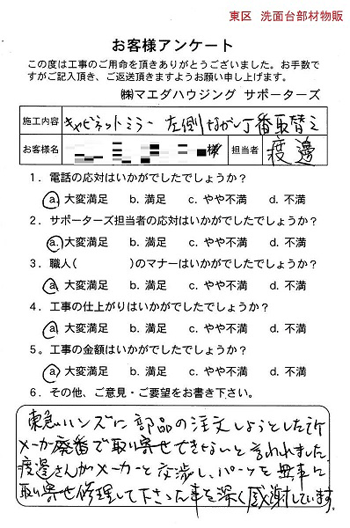 東区 洗面台部材物販
お客様アンケート
この度は工事のご用命を頂きありがとうございました。お手数で
すがご記入頂き、ご返送頂きますようお願い申し上げます。
㈱マエダハウジング サポーターズ
施工内容 キャビネットミラー 左側ながし丁番取替え
お客様名 様 担当者 渡邊
1．電話の応対はいかがでしたでしょうか？
a. 大変満足 b. 満足 c. やや不満 d. 不満
2．サポーターズ担当者の応対はいかがでしたでしょうか？
a. 大変満足 b. 満足 c. やや不満 d. 不満
3．職人( )のマナーはいかがでしたでしょうか？
a 大変満足 b. 満足 c. やや不満 d. 不満
4．工事の仕上がりはいかがでしたでしょうか？
a 大変満足 b. 満足 c. やや不満 d. 不満
5．工事の金額はいかがでしたでしょうか？
a 大変満足 b. 満足 c. やや不満 d. 不満
6．その他、ご意見・ご要望をお書き下さい。
東急ハンズに部品の注文しようとした所
メーカー廃番で取り寄せできないと言われました。
渡邊さんがメーカーと交渉し、パーツを無事に
取り寄せ修理して下さった事を深く感謝しています。